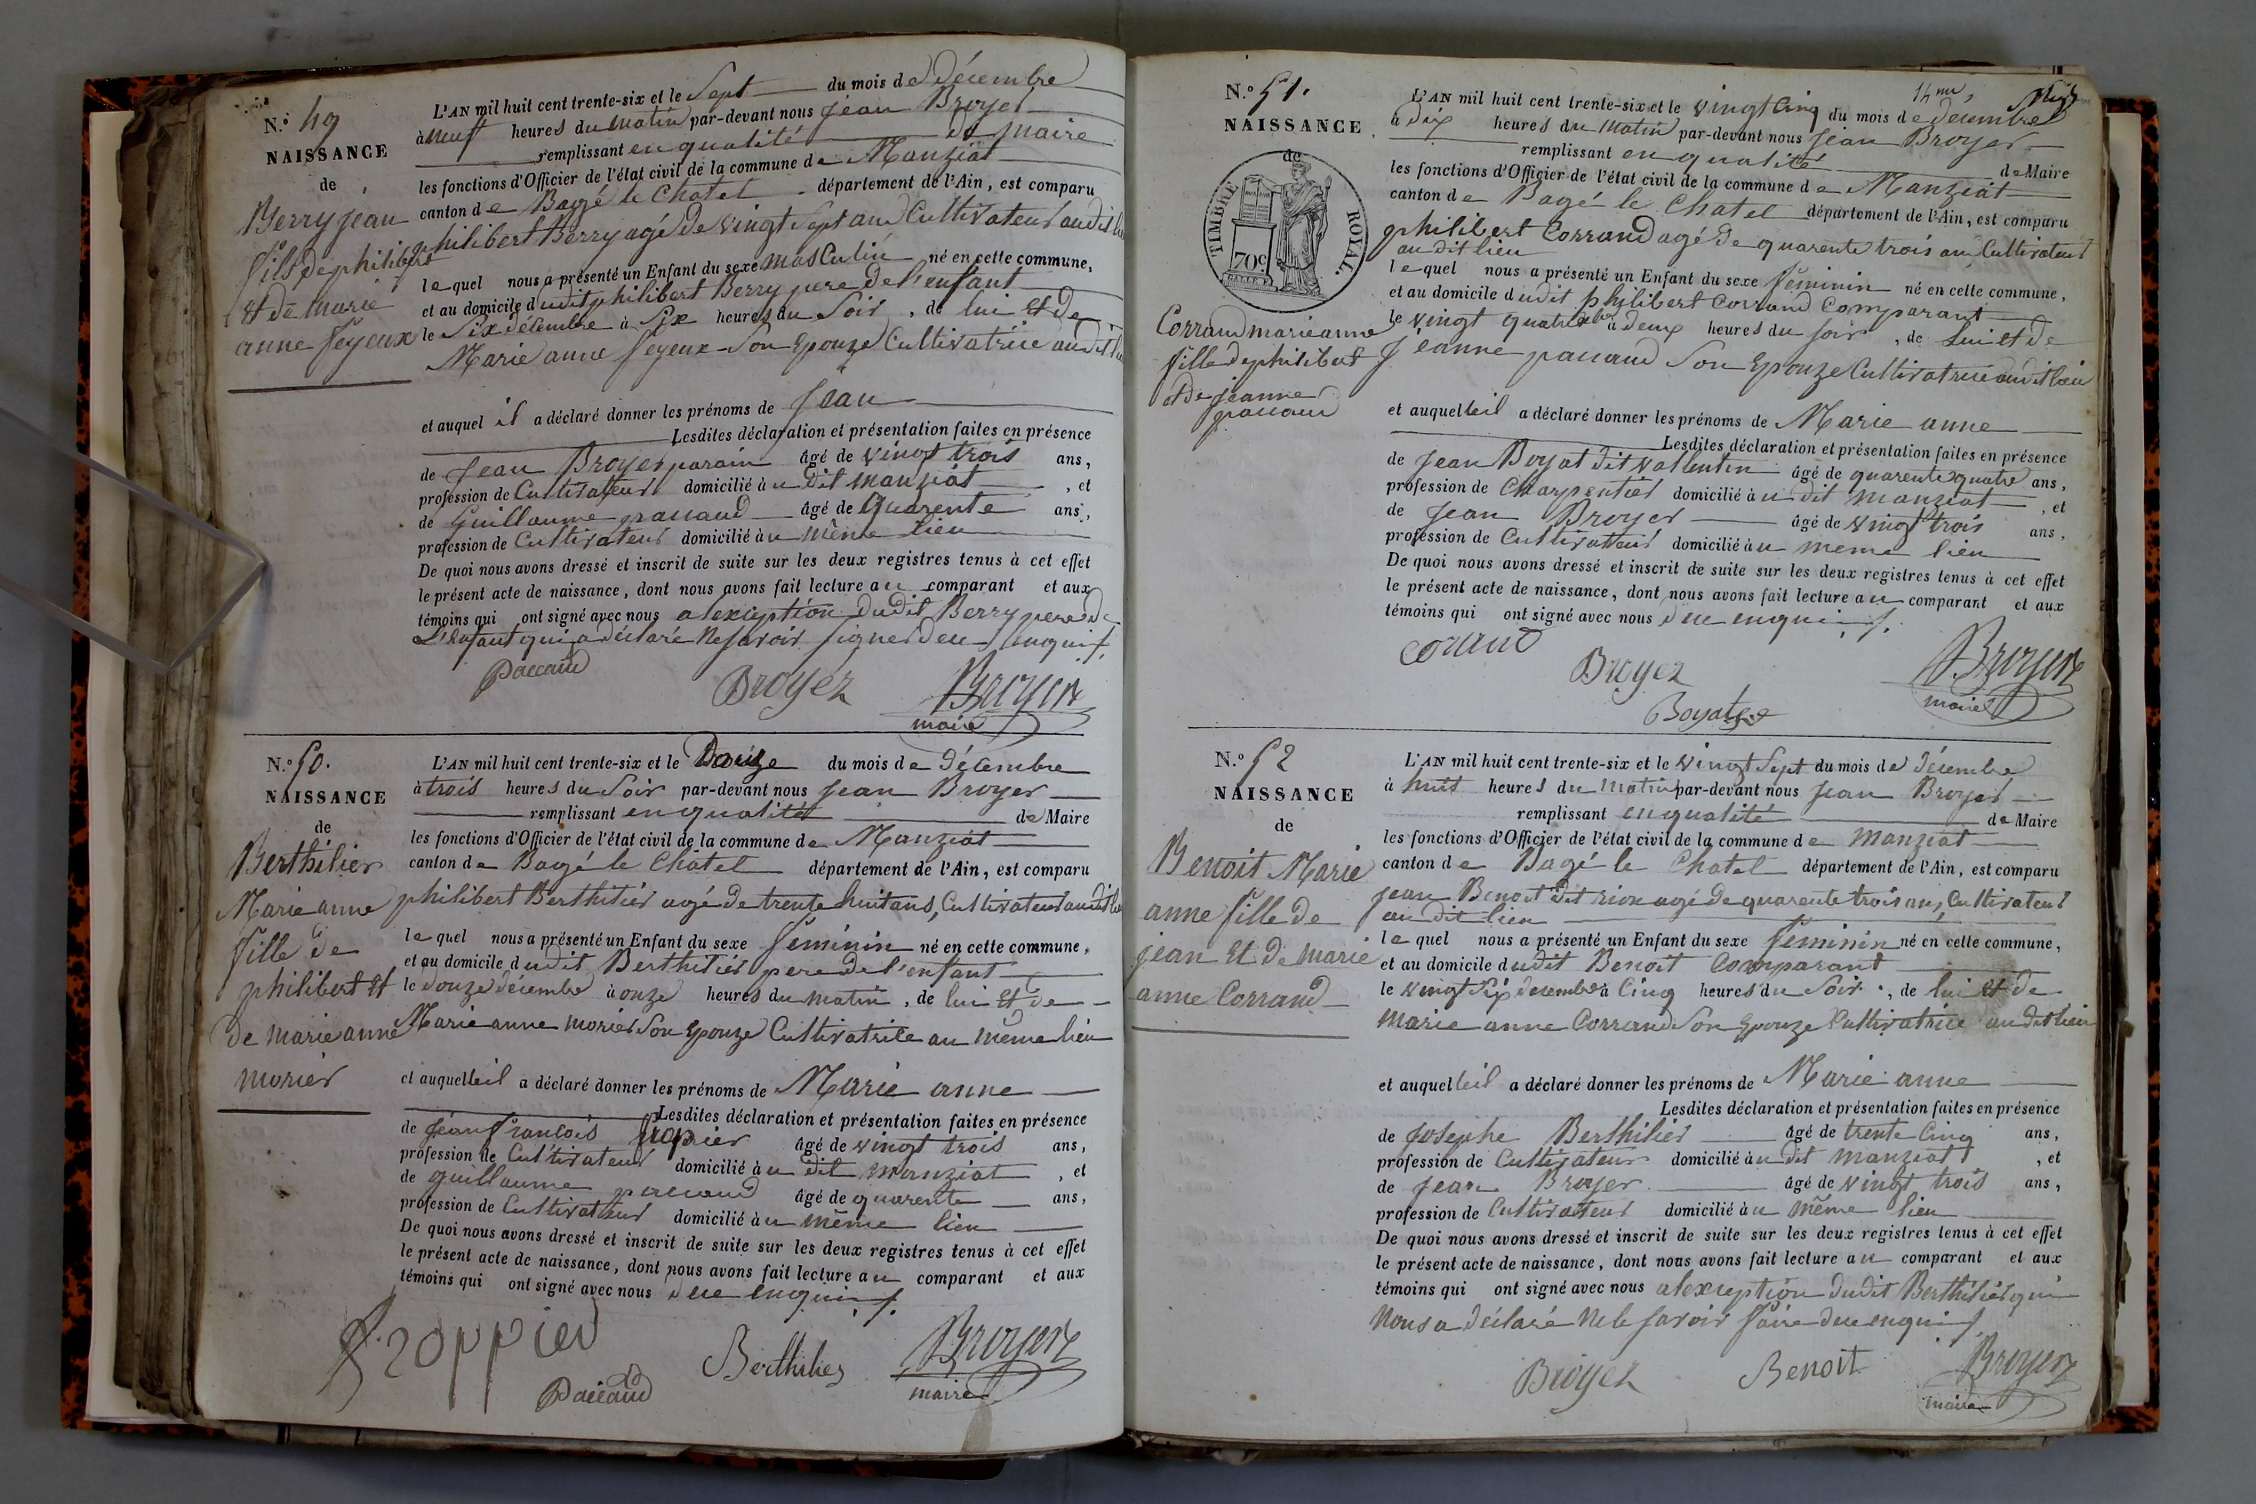 N.º 49
NAISSANCE
de
Berry jean
fils de philibert
et de marie
anne feyeux
L'AN mil huit cent trente-six et le Sept du mois de Décembre
à neuf heures du matin par-devant nous Jean Broyer
remplissant en qualité de maire
les fonctions d'Officier de l'état civil de la commune de Manziat
canton de Bagé le Chatel département de l'Ain, est comparu
philibert Berry agé de vingt Sept ans Cultivateur audit lieu
lequel nous a présenté un Enfant du sexe masculin né en cette commune,
et au domicile dudit philibert Berry pere de l'enfant
le Six décembre à Six heures du Soir, de lui et de
Marie anne feyeux Son Epouze Cultivatrice audit lieu
et auquel il a déclaré donner les prénoms de Jean
Lesdites déclaration et présentation faites en présence
de Jean Broyer parain âgé de vingt trois ans,
profession de Cultivateur domicilié à u dit manziat, et
de Guillaume paccaud âgé de quarente ans,
profession de Cultivateur domicilié à u même lieu
De quoi nous avons dressé et inscrit de suite sur les deux registres tenus à cet effet
le présent acte de naissance, dont nous avons fait lecture au comparant et aux
témoins qui ont signé avec nous a lexception dudit Berry pere de
L'enfant qui a déclaré ne savoir signer de ce enquis.
Paccaud Broyer Broyer
maire
N.º 50.
NAISSANCE
de
Berthilier
Marie anne
fille de
philibert et
de marie anne
morier
L'AN mil huit cent trente-six et le Douze du mois de décembre
à trois heures du Soir par-devant nous Jean Broyer
remplissant en qualité de Maire
les fonctions d'Officier de l'état civil de la commune de Manziat
canton de Bagé le Chatel département de l'Ain, est comparu
philibert Berthilier agé de trente huit ans, Cultivateur audit lieu
lequel nous a présenté un Enfant du sexe feminin né en cette commune,
et au domicile dudit Berthilier pere de l'enfant
le douze décembre à onze heures du matin, de lui et de
Marie anne morier Son Epouze Cultivatrice au même lieu
et auquel leil a déclaré donner les prénoms de Marie anne
Lesdites déclaration et présentation faites en présence
de Jean francois âgé de vingt trois ans,
profession de Cultivateur domicilié à u dit manziat, et
de guillaume paccaud âgé de quarente ans,
profession de Cultivateur domicilié à u même lieu
De quoi nous avons dressé et inscrit de suite sur les deux registres tenus à cet effet
le présent acte de naissance, dont nous avons fait lecture au comparant et aux
témoins qui ont signé avec nous de ce enquis.
Berthilier Broyer
Paccaud maire
14me
N.º 51.
NAISSANCE
de
TIMBRE ROYAL.
70c
Corrand marie anne
fille de philibert
et de jeanne
paccaud
L'AN mil huit cent trente-six et le vingt Cinq du mois de décembre
à dix heures du matin par-devant nous Jean Broyer
remplissant en qualité de Maire
les fonctions d'Officier de l'état civil de la commune de Manziat
canton de Bagé le Chatel département de l'Ain, est comparu
philibert Corrand agé de quarente trois ans, Cultivateur
au dit lieu
lequel nous a présenté un Enfant du sexe féminin né en cette commune,
et au domicile dudit philibert Corrand Comparant
le vingt quatre xbre à deux heures du soir, de lui et de
Jeanne paccaud Son Epouze Cultivatrice audit lieu
et auquel leil a déclaré donner les prénoms de Marie anne
Lesdites déclaration et présentation faites en présence
de Jean Boyat dit vallentin âgé de quarente quatre ans,
profession de Charpentier domicilié à u dit manziat, et
de Jean Broyer âgé de vingt trois ans,
profession de Cultivateur domicilié à u meme lieu
De quoi nous avons dressé et inscrit de suite sur les deux registres tenus à cet effet
le présent acte de naissance, dont nous avons fait lecture au comparant et aux
témoins qui ont signé avec nous de ce enquis.
corand Broyer Broyer
maire
Boyat
N.º 52
NAISSANCE
de
Benoit Marie
anne fille de
jean et de marie
anne Corrand
L'AN mil huit cent trente-six et le vingt Sept du mois de décembre
à huit heures du matin par-devant nous Jean Broyer
remplissant en qualité de Maire
les fonctions d'Officier de l'état civil de la commune de manziat
canton de Bagé le Chatel département de l'Ain, est comparu
jean Benoit dit rion agé de quarente trois ans, Cultivateur
au dit lieu
lequel nous a présenté un Enfant du sexe feminin né en cette commune,
et au domicile dudit Benoit Comparant
le vingt Six decembre à Cinq heures du Soir, de lui et de
marie anne Corrand Son Epouze Cultivatrice audit lieu
et auquel leil a déclaré donner les prénoms de Marie anne
Lesdites déclaration et présentation faites en présence
de Josephe Berthilier âgé de trente Cinq ans,
profession de Cultivateur domicilié à u dit manziat, et
de Jean Broyer âgé de vingt trois ans,
profession de Cultivateur domicilié à u même lieu
De quoi nous avons dressé et inscrit de suite sur les deux registres tenus à cet effet
le présent acte de naissance, dont nous avons fait lecture au comparant et aux
témoins qui ont signé avec nous a lexception dudit Berthilier qui
Nous a déclaré ne le savoir faire de ce enquis
Broyer Benoit Broyer
maire